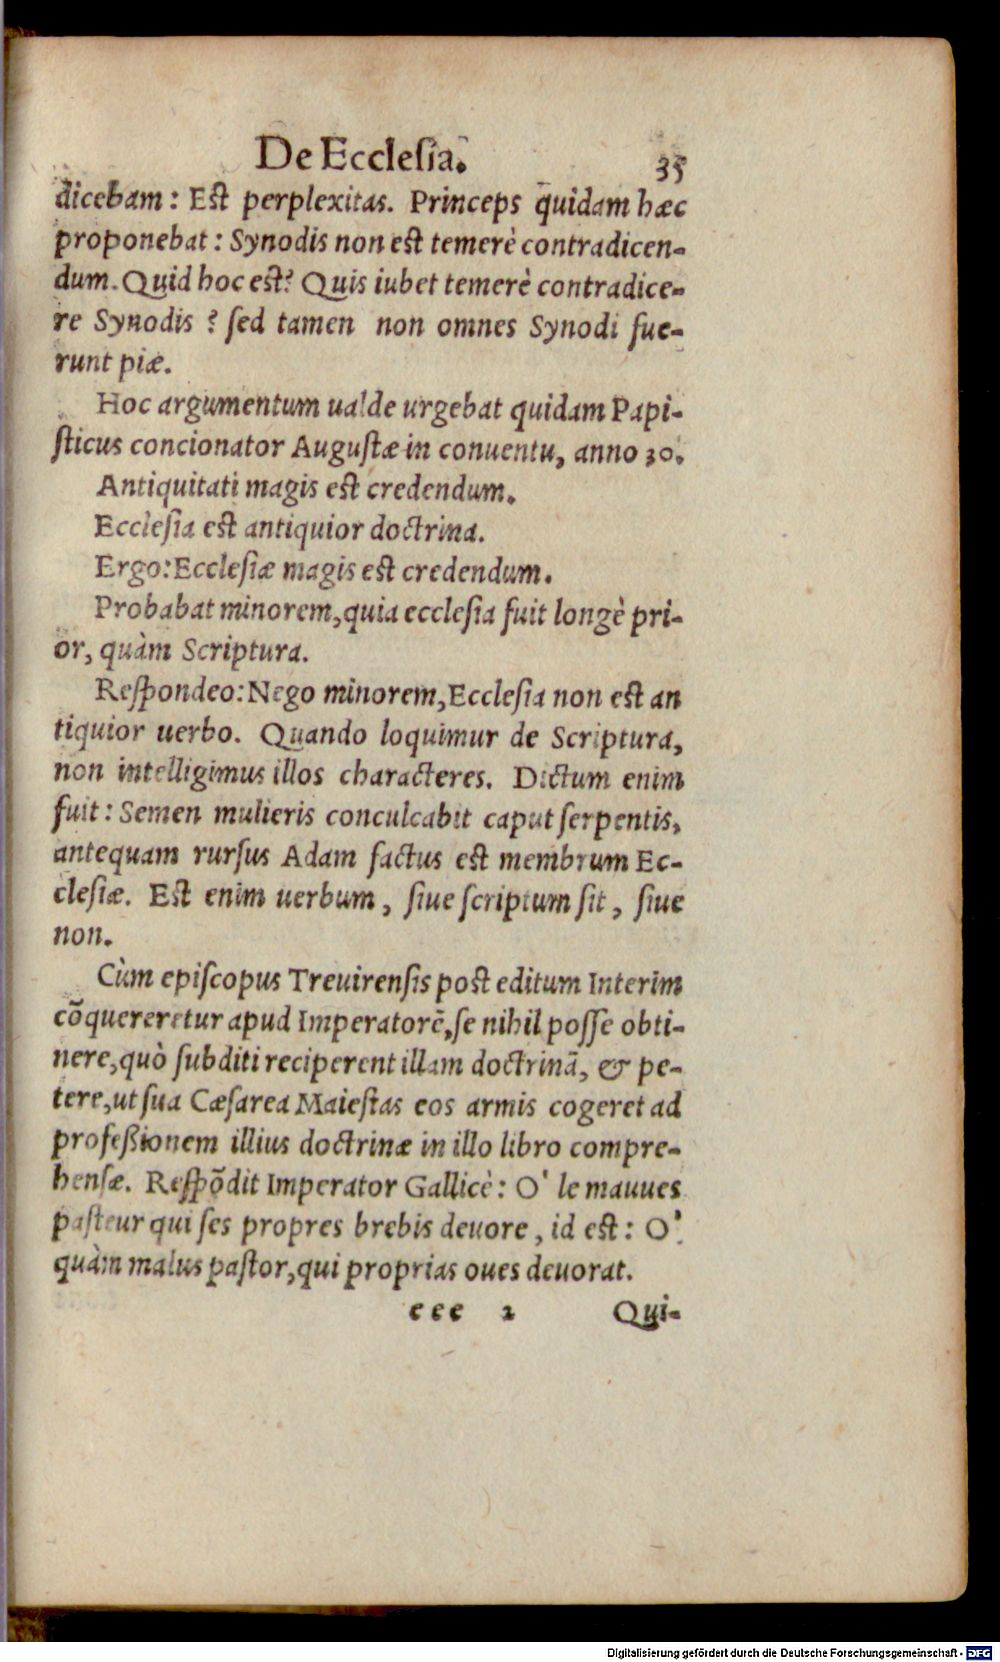 De Ecclesia.
35
dicebam: Est perplexitas. Princeps quidam hæc
proponebat: Synodis non est temerè contradicen-
dum. Quid hoc est? Quis iubet temerè contradice-
re Synodis? sed tamen non omnes Synodi fue-
runt piæ.
Hoc argumentum ualde urgebat quidam Papi-
sticus concionator Augustæ in conuentu, anno 30.
Antiquitati magis est credendum.
Ecclesia est antiquior doctrina.
Ergo: Ecclesiæ magis est credendum.
Probabat minorem, quia ecclesia fuit longè pri-
or, quàm Scriptura.
Respondeo: Nego minorem, Ecclesia non est an
tiquior uerbo. Quando loquimur de Scriptura,
non intelligimus illos characteres. Dictum enim
fuit: Semen mulieris conculcabit caput serpentis,
antequam rursus Adam factus est membrum Ec-
clesiæ. Est enim uerbum, siue scriptum sit, siue
non.
Cùm episcopus Treuirensis post editum Interim
cõquereretur apud Imperatorẽ, se nihil posse obti-
nere, quò subditi reciperent illam doctrinã, & pe-
tere, ut sua Cæsarea Maiestas eos armis cogeret ad
profeßionem illius doctrinæ in illo libro compre-
hensæ. Respõdit Imperator Gallicè: O' le mauues
pasteur qui ses propres brebis deuore, id est: O'
quàm malus pastor, qui proprias oues deuorat.
eee 2
Qui-
Digitalisierung gefördert durch die Deutsche Forschungsgemeinschaft - DFG